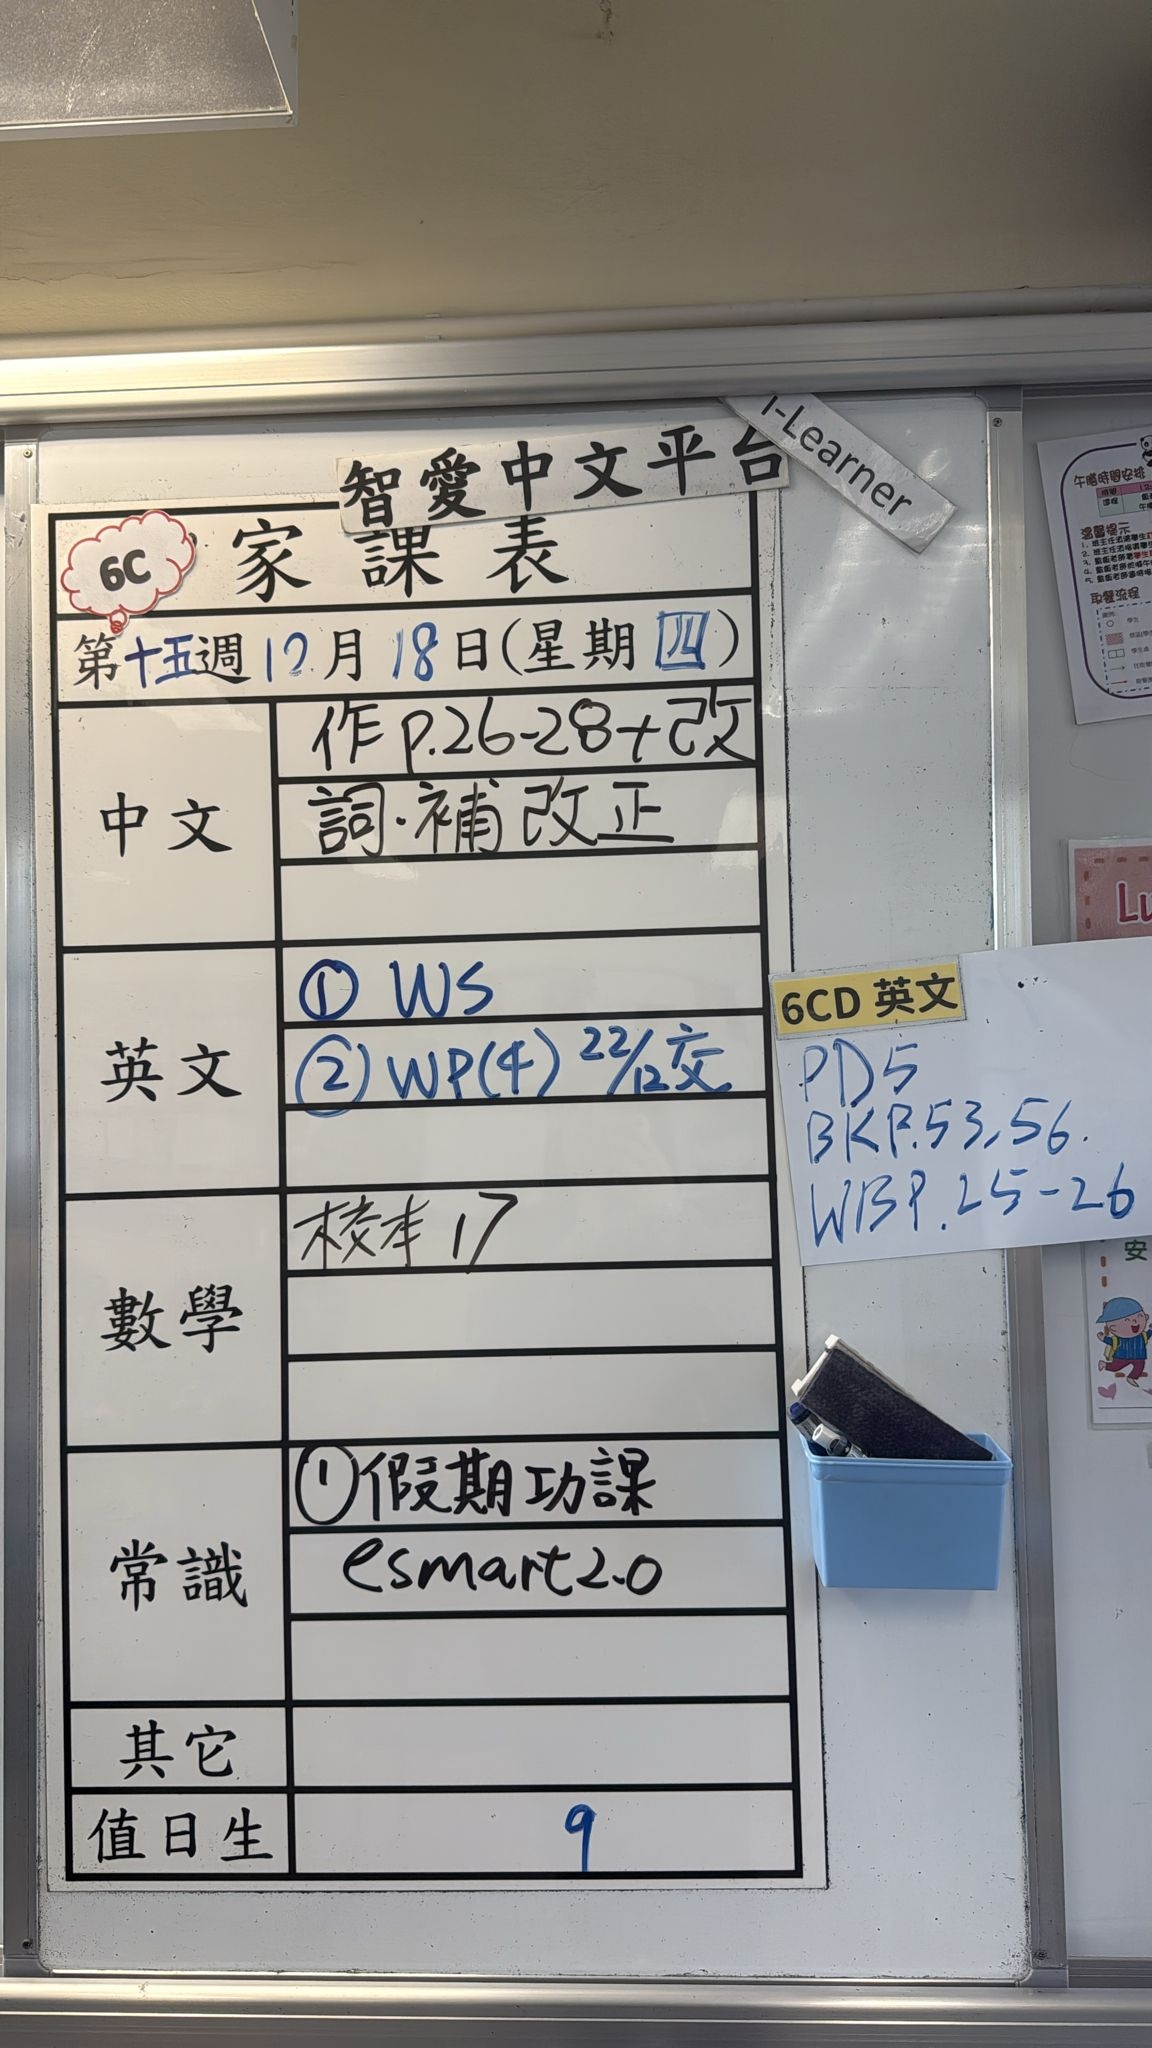 智愛中文平台
i-Learner
6C 家課表
第十五週12月18日(星期四)
中文
作 p.26-28+改
詞.補改正
英文
① WS
② WP(4) 22/12交
數學
校本 17
常識
①假期功課
esmart2.0
其它
值日生
9
6CD 英文
PD5
BKP.53,56.
WBP.25-26
午膳時間安排
溫馨提示
取餐流程
學生
Lu
安